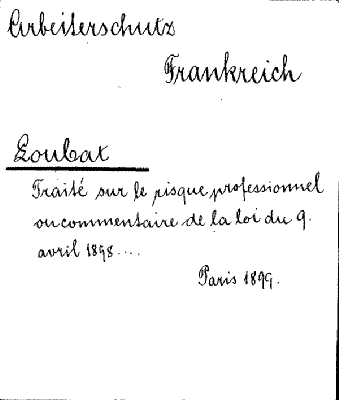 Arbeiterschutz
Frankreich
Loubat
Traité sur le risque professionnel
ou commentaire de la loi du 9.
avril 1898....
Paris 1899.